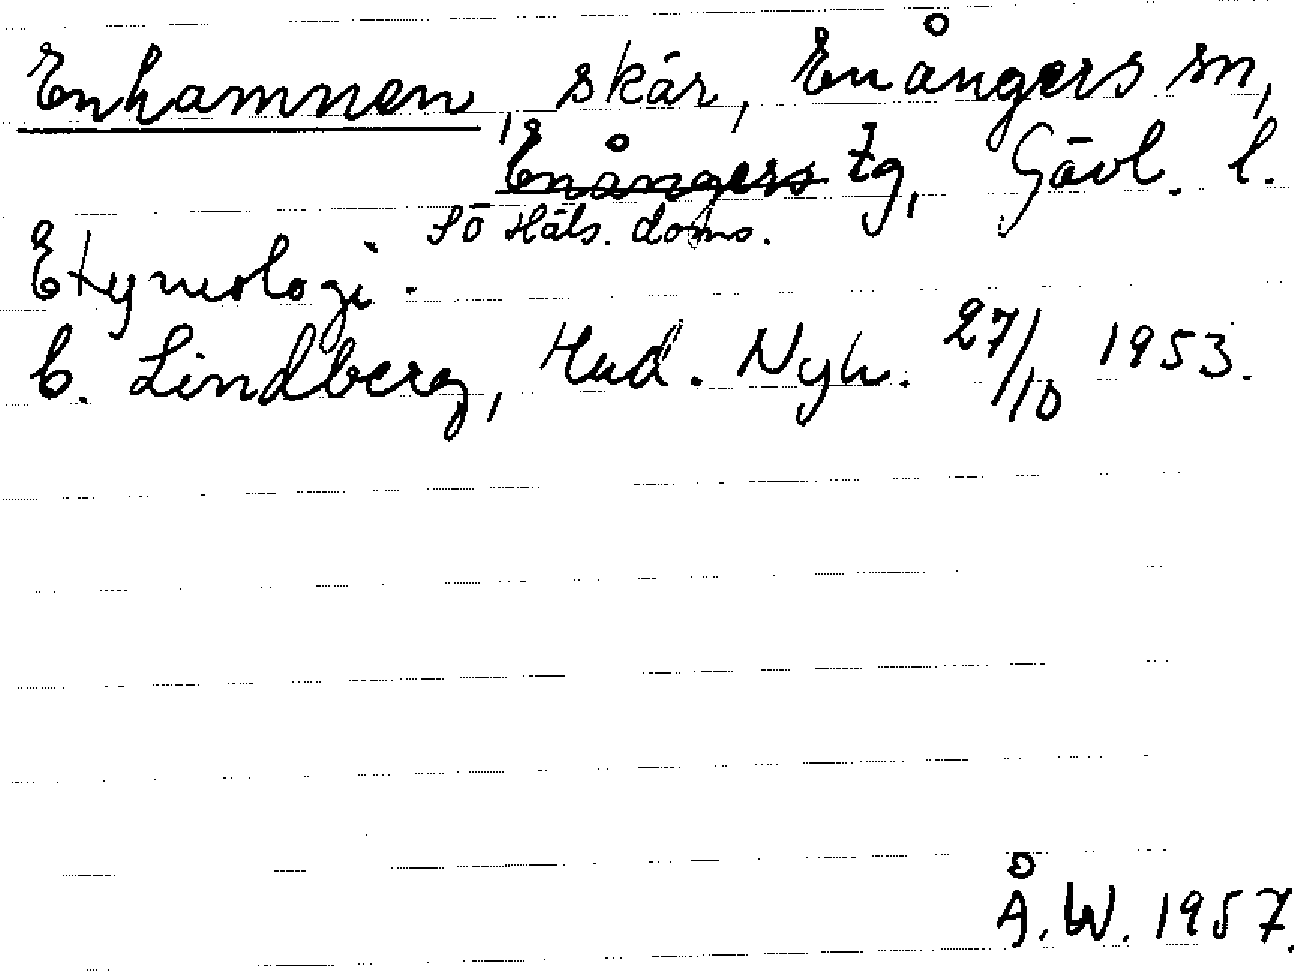 Enhamnen, skär, Enångers sn,
Enångers tg, Gävl. l.
Sö Häls. doms.
Etymologi.
C. Lindberg, Hud. Nyh. 27/10 1953.
Å. W. 1957.